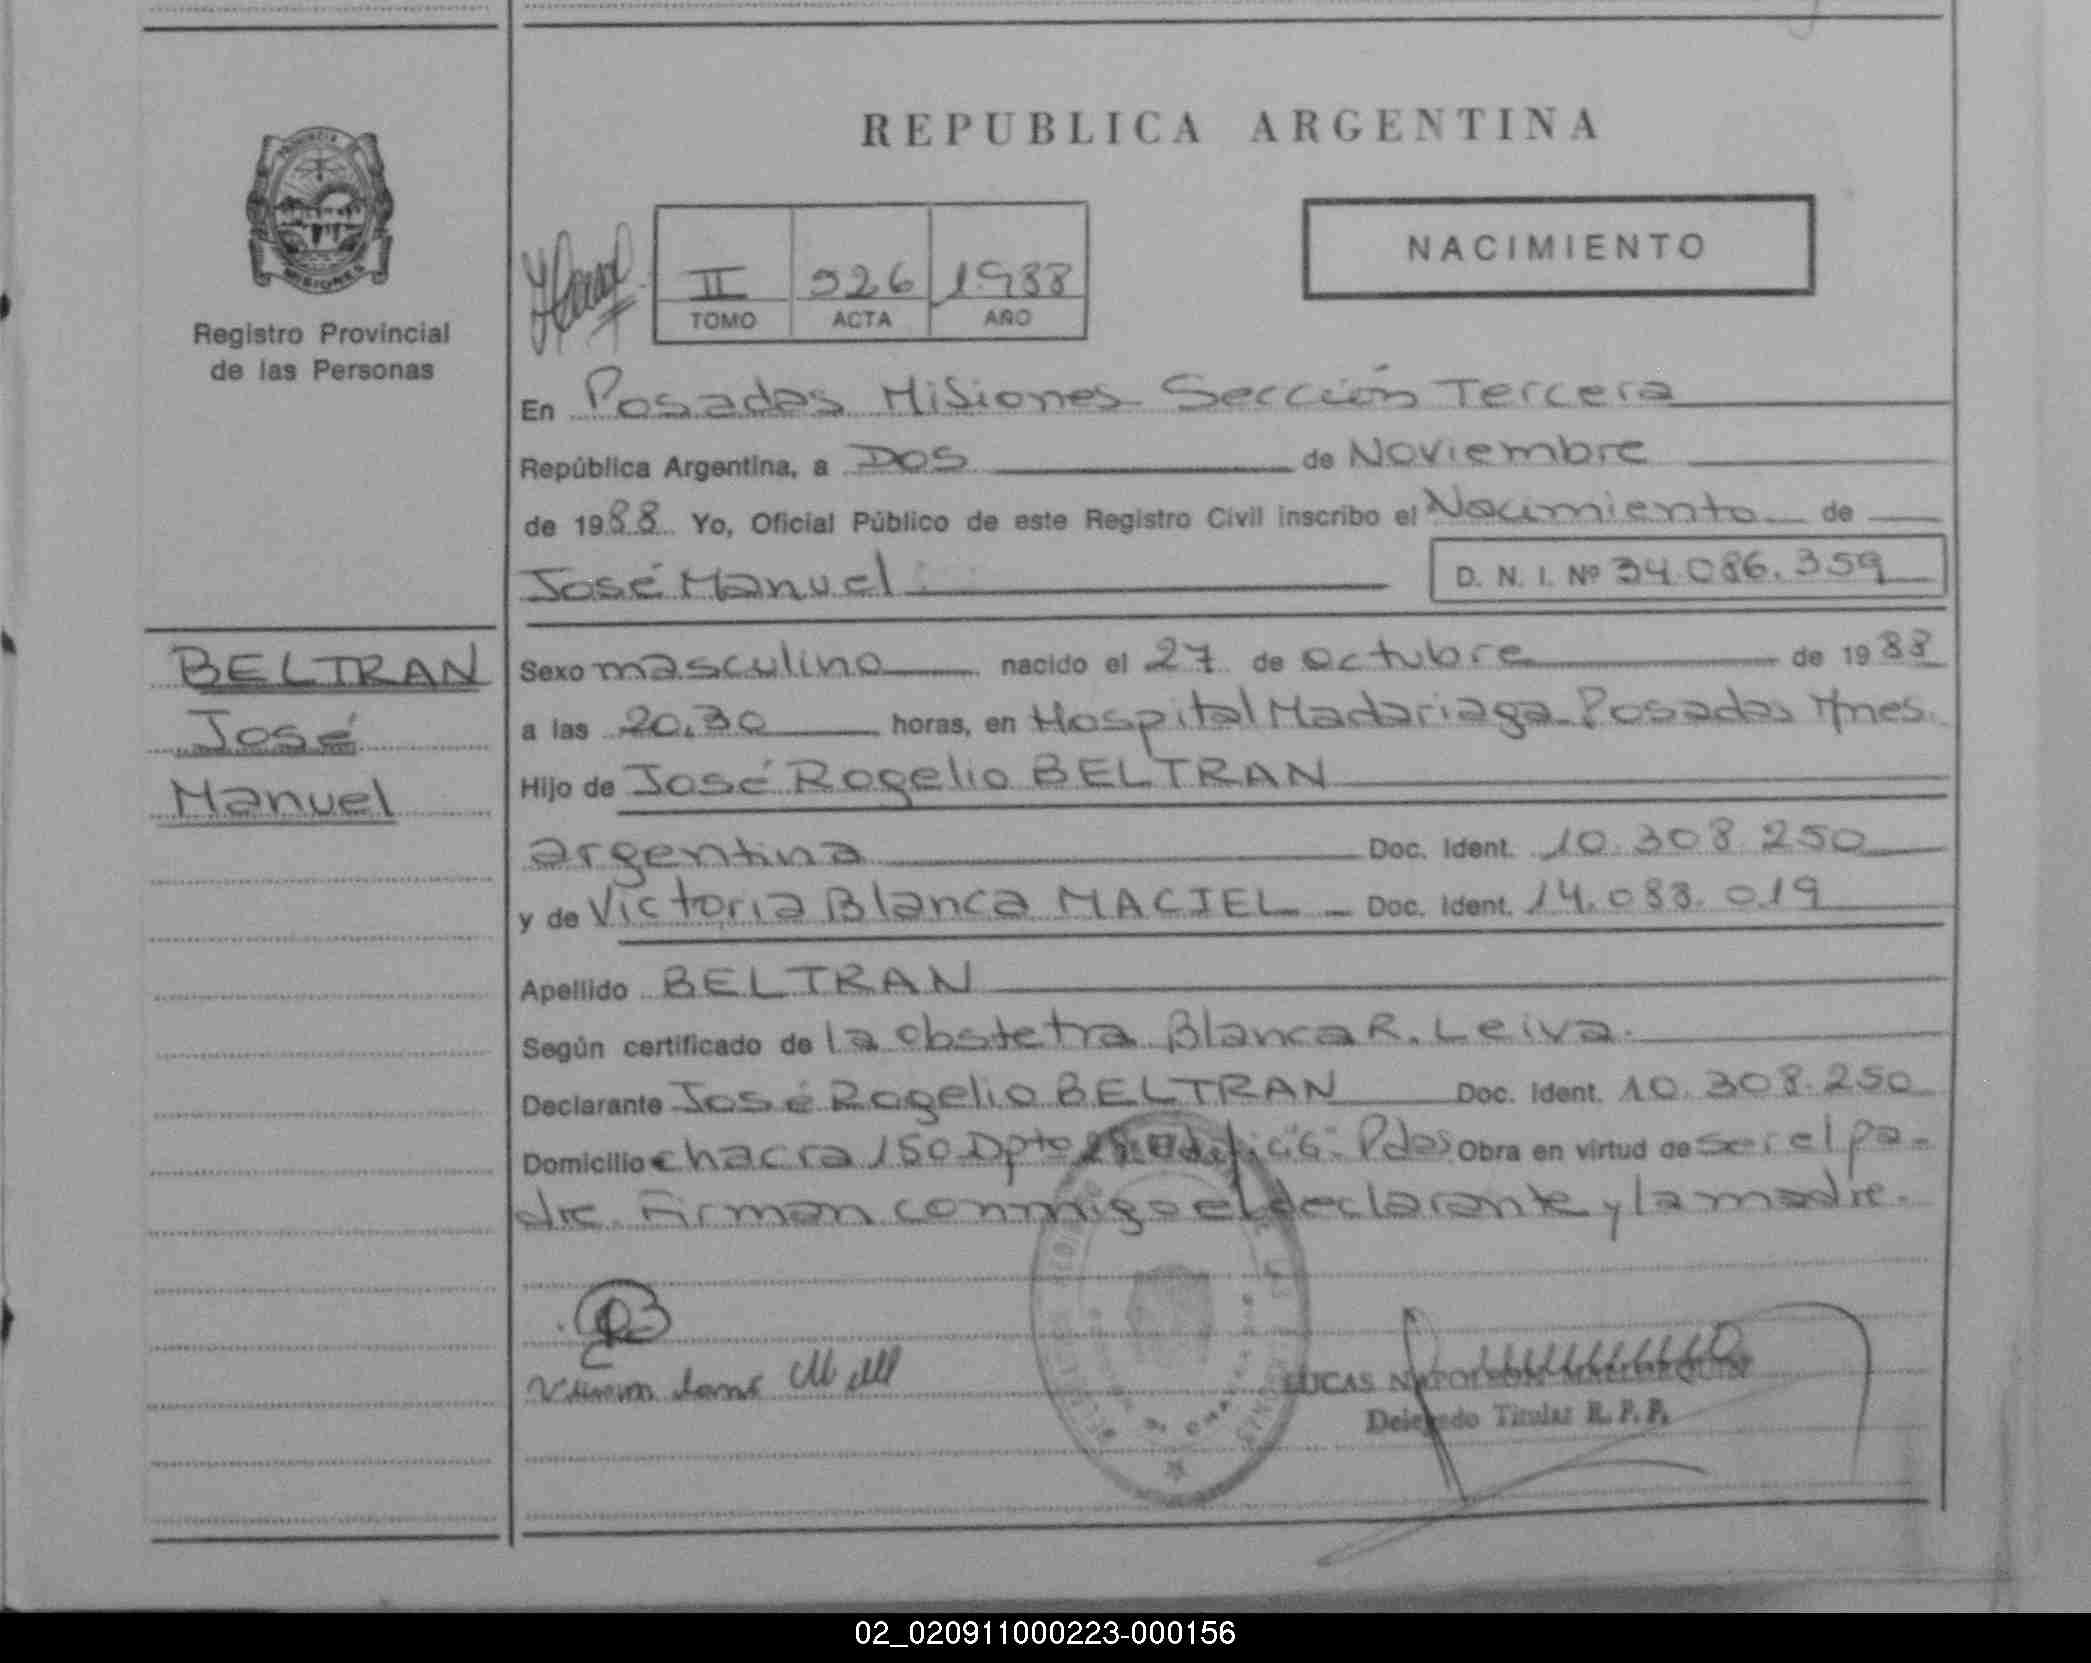 REPUBLICA ARGENTINA
PROVINCIA
MISIONES
Registro Provincial
de las Personas
II 926 1988
TOMO ACTA AÑO
NACIMIENTO
En Posadas Misiones Sección Tercera
República Argentina, a Dos de Noviembre
de 1988 Yo, Oficial Público de este Registro Civil inscribo el Nacimiento de
José Manuel D. N. I. Nº 34.086.359
BELTRAN
José
Manuel
Sexo masculino nacido el 27 de octubre de 1988
a las 20,30 horas, en Hospital Madariaga Posadas Mnes.
Hijo de José Rogelio BELTRAN
argentina Doc. Ident. 10.308.250
y de Victoria Blanca MACIEL Doc. Ident. 14.088.019
Apellido BELTRAN
Según certificado de la obstetra Blanca R. Leiva.
Declarante José Rogelio BELTRAN Doc. Ident. 10.308.250
Domicilio chacra 150 Dpto "G" Pdas Obra en virtud de ser el pa-
dre. Firman conmigo el declarante y la madre.
LUCAS
Delegado Titular R. P. P.
02_020911000223-000156